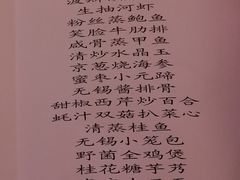 生抽河虾
粉丝蒸鲍鱼
笑脸牛肋排
咸骨蒸甲鱼
清炒水晶玉
京葱烧海参
蜜枣小元蹄
无锡酱排骨
甜椒西芹炒百合
蚝汁双菇扒菜心
清蒸桂鱼
无锡小笼包
野菌全鸡煲
桂花糖芋艿